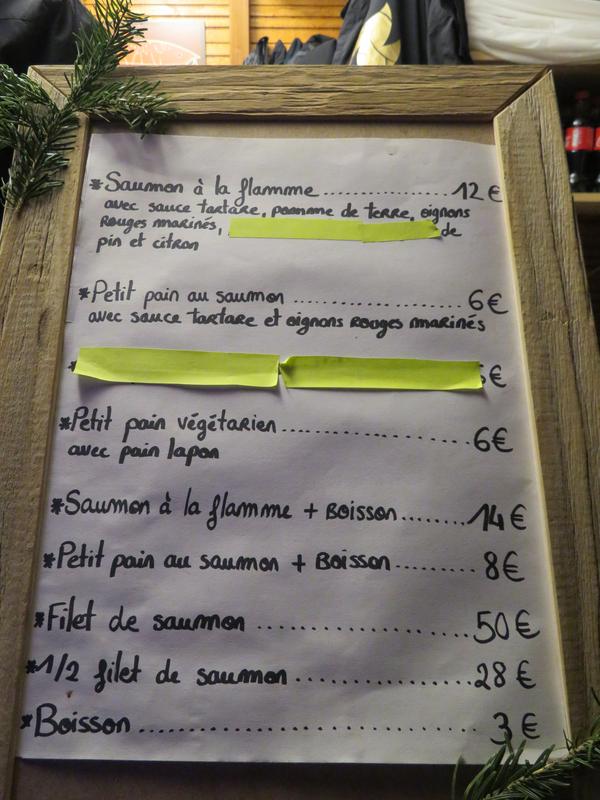 *Saumon à la flamme...............12€
avec sauce tartare, pomme de terre, oignons
Rouges marinés, de
pin et citron
*Petit pain au saumon ....................6€
avec sauce tartare et oignons Rouges marinés
* €
*Petit pain végétarien......................6€
avec pain lapon
*Saumon à la flamme + Boisson.......14€
*Petit pain au saumon + Boisson........8€
*Filet de saumon ......................50€
*1/2 filet de saumon..................28€
*Boisson...............................3€